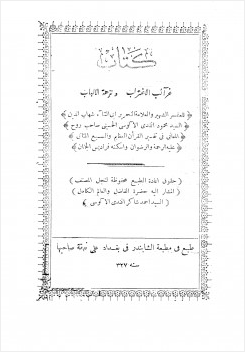 كتاب
غرائب الاغتراب ونزهة الالباب
للمفسر الشهير والعلامة النحرير ابى الثناء شهاب الدين
السيد محمود افندى الآلوسى الحسينى صاحب روح
المعانى فى تفسير القرآن العظيم والسبع المثانى
عليه الرحمة والرضوان واسكنه فراديس الجنان
حقوق اعادة الطبع محفوظة لنجل المصنف
المشار اليه حضرة الفاضل والعالم الكامل
السيد احمد شاكر افندى الآلوسى
طبع فى مطبعة الشابندر فى بغداد على نفقة صاحبها
سنه ٣٢٧